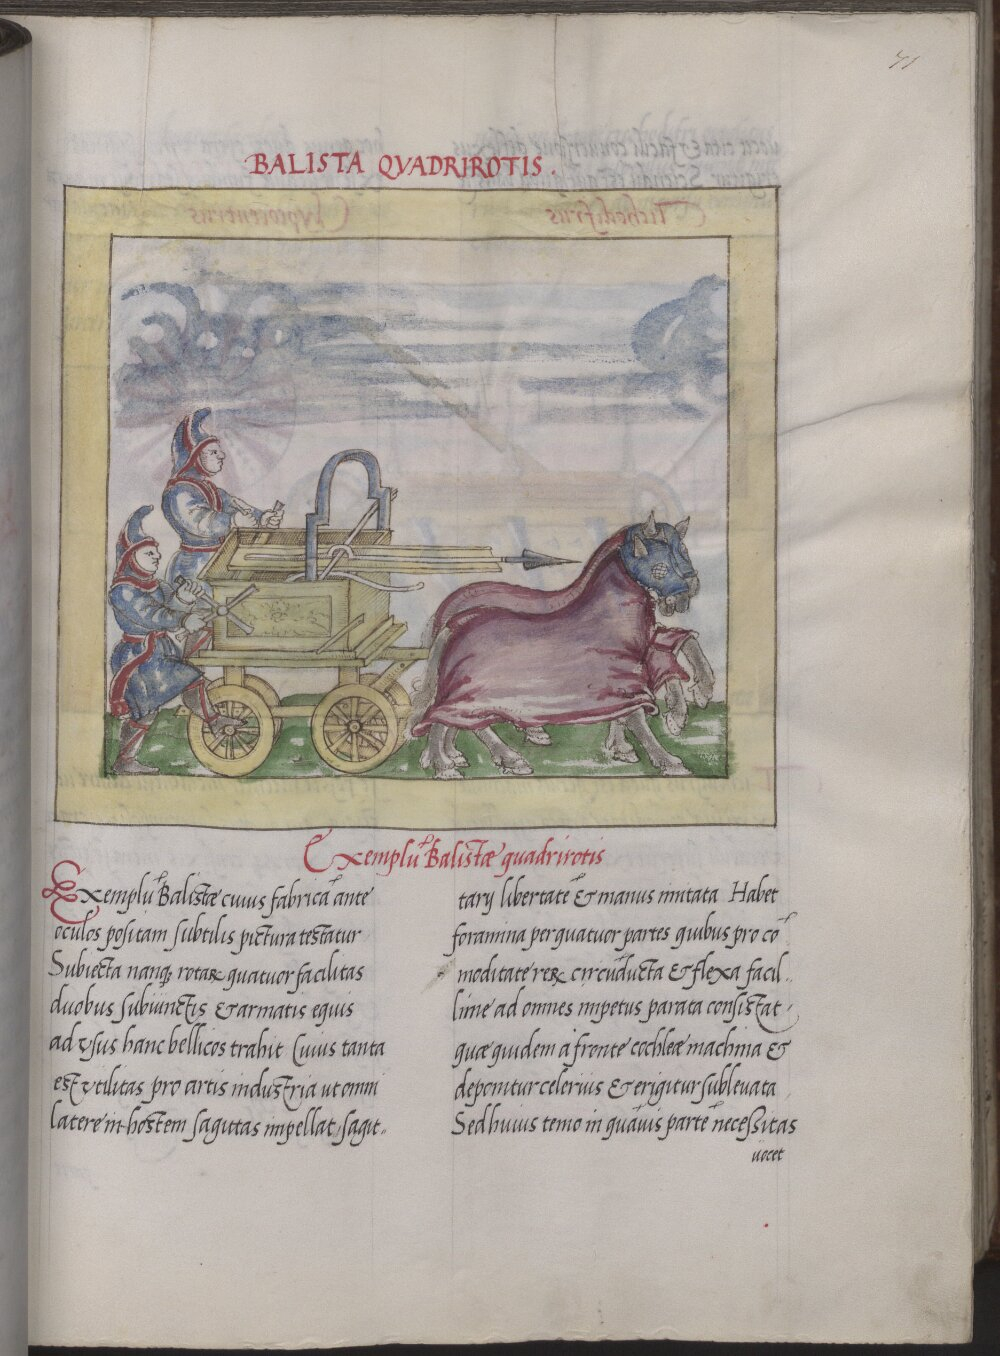 71
BALISTA QVADRIROTIS.
Exemplũ Balistæ quadrirotis
Exemplũ Balistæ cuius fabricã ante
oculos positam subtilis pictura testatur
Subiecta nanq; rotaꝝ quatuor facilitas
duobus subiunctis & armatis equis
ad vsus hanc bellicos trahit Cuius tanta
est vtilitas pro artis industria ut omni
latere in hostem sagittas impellat, sagit-
tarij libertate & manus imitata Habet
foramina per quatuor partes quibus pro cõ
moditate reꝝ circũducta & flexa facil-
lime ad omnes impetus parata consistat
quæ quidem à fronte cochleæ machina &
deponitur celerius & erigitur subleuata
Sed huius temo in quãuis parte necessitas
uocet